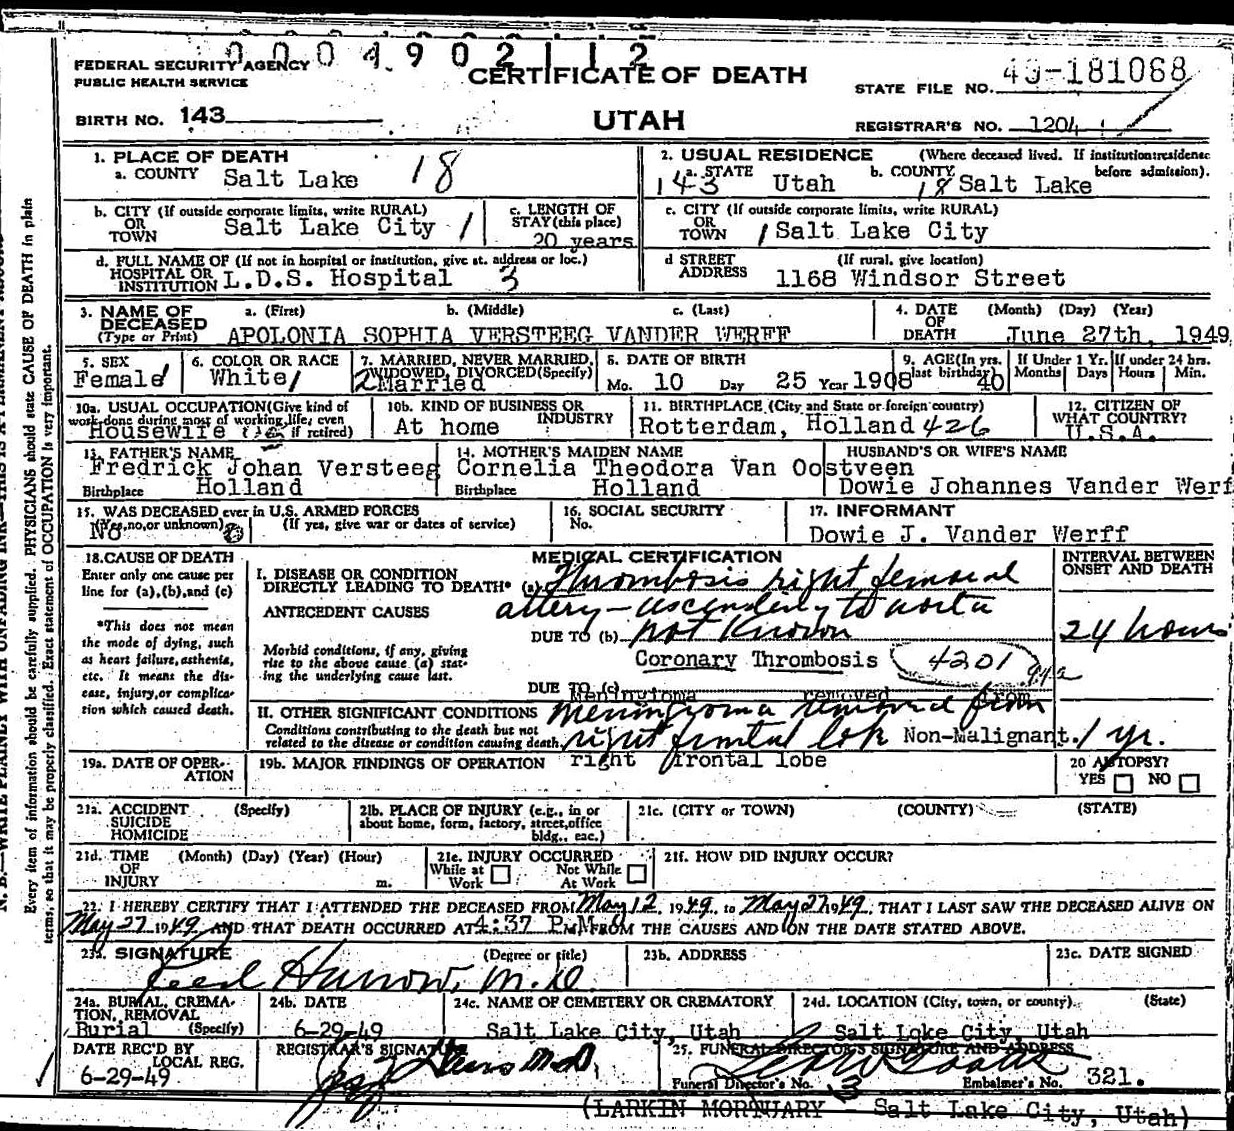 0 0 0 4 9 0 2 1 1 2
FEDERAL SECURITY AGENCY
PUBLIC HEALTH SERVICE
CERTIFICATE OF DEATH
STATE FILE NO. 49-181068
BIRTH NO. 143
UTAH
REGISTRAR'S NO. 1204
1. PLACE OF DEATH
a. COUNTY Salt Lake 18
2. USUAL RESIDENCE (Where deceased lived. If institution:residence before admission).
143 a. STATE Utah b. COUNTY 18 Salt Lake
b. CITY (If outside corporate limits, write RURAL) OR TOWN Salt Lake City 1
c. LENGTH OF STAY (this place) 20 years
c. CITY (If outside corporate limits, write RURAL) OR TOWN 1 Salt Lake City
d. FULL NAME OF (If not in hospital or institution, give st. address or loc.) HOSPITAL OR INSTITUTION L.D.S. Hospital 3
d STREET ADDRESS (If rural, give location) 1168 Windsor Street
3. NAME OF DECEASED (Type or Print) a. (First) b. (Middle) c. (Last)
APOLONIA SOPHIA VERSTEEG VANDER WERFF
4. DATE OF DEATH (Month) (Day) (Year) June 27th, 1949
5. SEX Female 1
6. COLOR OR RACE White 1
7. MARRIED, NEVER MARRIED, WIDOWED, DIVORCED (Specify) 2 Married
8. DATE OF BIRTH Mo. 10 Day 25 Year 1908
9. AGE (In yrs. last birthday) 40
If Under 1 Yr. Months Days
If under 24 hrs. Hours Min.
10a. USUAL OCCUPATION (Give kind of work done during most of working life, even if retired) Housewife
10b. KIND OF BUSINESS OR INDUSTRY At home
11. BIRTHPLACE (City and State or foreign country) Rotterdam, Holland 426
12. CITIZEN OF WHAT COUNTRY? U.S.A.
13. FATHER'S NAME Fredrick Johan Versteeg
Birthplace Holland
14. MOTHER'S MAIDEN NAME Cornelia Theodora Van Oostveen
Birthplace Holland
HUSBAND'S OR WIFE'S NAME
Dowie Johannes Vander Werf
15. WAS DECEASED ever in U.S. ARMED FORCES
(Yes, no, or unknown) No (If yes, give war or dates of service)
16. SOCIAL SECURITY No.
17. INFORMANT
Dowie J. Vander Werff
18. CAUSE OF DEATH
Enter only one cause per line for (a), (b), and (c)
*This does not mean the mode of dying, such as heart failure, asthenia, etc. It means the disease, injury, or complication which caused death.
MEDICAL CERTIFICATION
INTERVAL BETWEEN ONSET AND DEATH
I. DISEASE OR CONDITION DIRECTLY LEADING TO DEATH* (a) Thrombosis right femoral
artery - ascending to aorta
ANTECEDENT CAUSES
DUE TO (b) not known
24 hours
Morbid conditions, if any, giving rise to the above cause (a) stating the underlying cause last.
Coronary Thrombosis 4201
94a
DUE TO (c)
Meningioma removed from
II. OTHER SIGNIFICANT CONDITIONS Meningioma removed from
Conditions contributing to the death but not related to the disease or condition causing death. right frontal lobe Non-Malignant. 1 yr.
right frontal lobe
19a. DATE OF OPERATION
19b. MAJOR FINDINGS OF OPERATION
20 AUTOPSY? YES NO
21a. ACCIDENT SUICIDE HOMICIDE (Specify)
21b. PLACE OF INJURY (e.g., in or about home, form, factory, street, office bldg., eac.)
21c. (CITY or TOWN) (COUNTY) (STATE)
21d. TIME OF INJURY (Month) (Day) (Year) (Hour) m.
21e. INJURY OCCURRED While at Work Not While At Work
21f. HOW DID INJURY OCCUR?
22. I HEREBY CERTIFY THAT I ATTENDED THE DECEASED FROM May 12, 1949, to May 27 1949, THAT I LAST SAW THE DECEASED ALIVE ON
May 27 1949 AND THAT DEATH OCCURRED AT 4:37 P.M. FROM THE CAUSES AND ON THE DATE STATED ABOVE.
23a. SIGNATURE (Degree or title)
Reed Harrow, M.D.
23b. ADDRESS
23c. DATE SIGNED
24a. BURIAL, CREMATION, REMOVAL (Specify) Burial
24b. DATE 6-29-49
24c. NAME OF CEMETERY OR CREMATORY Salt Lake City, Utah
24d. LOCATION (City, town, or county) (State) Salt Loke City, Utah
DATE REC'D BY LOCAL REG. 6-29-49
REGISTRAR'S SIGNATURE M.D.
25. FUNERAL DIRECTOR'S SIGNATURE AND ADDRESS
Funeral Director's No. 3 Embalmer's No. 321.
(LARKIN MORTUARY - Salt Lake City, Utah)
Every item of information should be carefully supplied. PHYSICIANS should state CAUSE OF DEATH in plain
terms, so that it may be properly classified. Exact statement of OCCUPATION is very important.